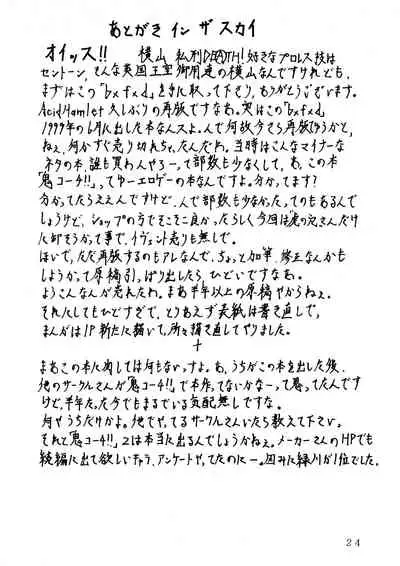 あとがき イン ザ スカイ
オイッス!! 横山 私刑DEATH! 好きなプロレス技は
セントーン、そんな英国王室御用達の横山なんですけれども、
まずはこの「bxfxd」を手に取って下さり、ありがとうございます。
AcidHamlet久しぶりの再版ですなあ。実はこの「bxfxd」
1999年の6月に出した本なんスよ。んで何故今さら再版かゆうかと、
ねえ、何かすぐ売り切れちゃったんだわ。当時はこんなマイナーな
ネタの本、誰も買わんやろーって部数も少なくして。あ、この本
「鬼コーチ!!」ってゆーエロゲーの本なんですよ。分かってます?
分かってたらええんですけど、んで部数も少なかったってのもあるんで
しょうけど、ショップの方でそこそこ良かったらしく今回は虎の穴さんだけ
に卸そうかって事で、イヴェント売りも無しで。
ほいで、ただ再版するのもアレなんで、ちょっと加筆、修正なんかも
しようかって原稿引っぱり出したら、ひどいですなあ。
ようこんなんが売れたわ。まあ半年以上の原稿やからねえ。
それにしてもひどすぎで、とりあえず表紙は書き直しで、
まんがは1P新たに描いて、所々描き直してやりました。
+
まあこの本に関しては何もないっすよ。あ、うちがこの本を出した後、
他のサークルさんが「鬼コーチ!!」で本作ってないかなーって思ってたんです
けど、半年たった今でもまるでいる気配無しですな。
何やうちだけかよ。他でやってるサークルさんいたら教えて下さい。
それと「鬼コーチ!!」2は本当に出るんでしょうかねえ。メーカーさんのHPでも
続編に出て欲しいキャラ、アンケートやってたのにー。因みに緑川が1位でした。
24